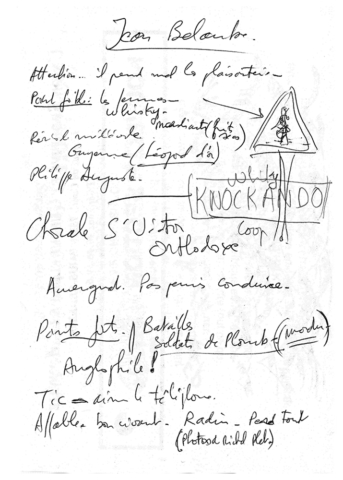 Jean
Attention.. il prend mal les plaisanteries
Point faible: les femmes
whisky
Période militaire
Guyenne (Léopard d'or)
Philippe Auguste.
Whisky
KNOCKANDO
Coop
Chorale St Victor
Orthodoxe
Auvergnat. Pas permis conduire.
Points forts. Batailles
Soldats de Plomb (mordu)
Anglophile!
Tic = aime le téléphone.
Affable - bon vivant. Radin - Perd tout